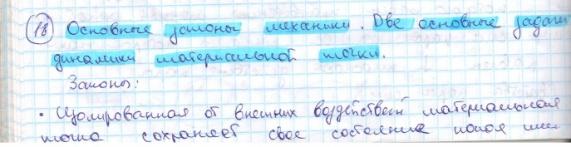 18 Основные законы механики. Две основные задачи
динамики материальной точки.
Законы:
• Изолированная от внешних воздействий материальная
точка сохраняет свое состояние покоя или